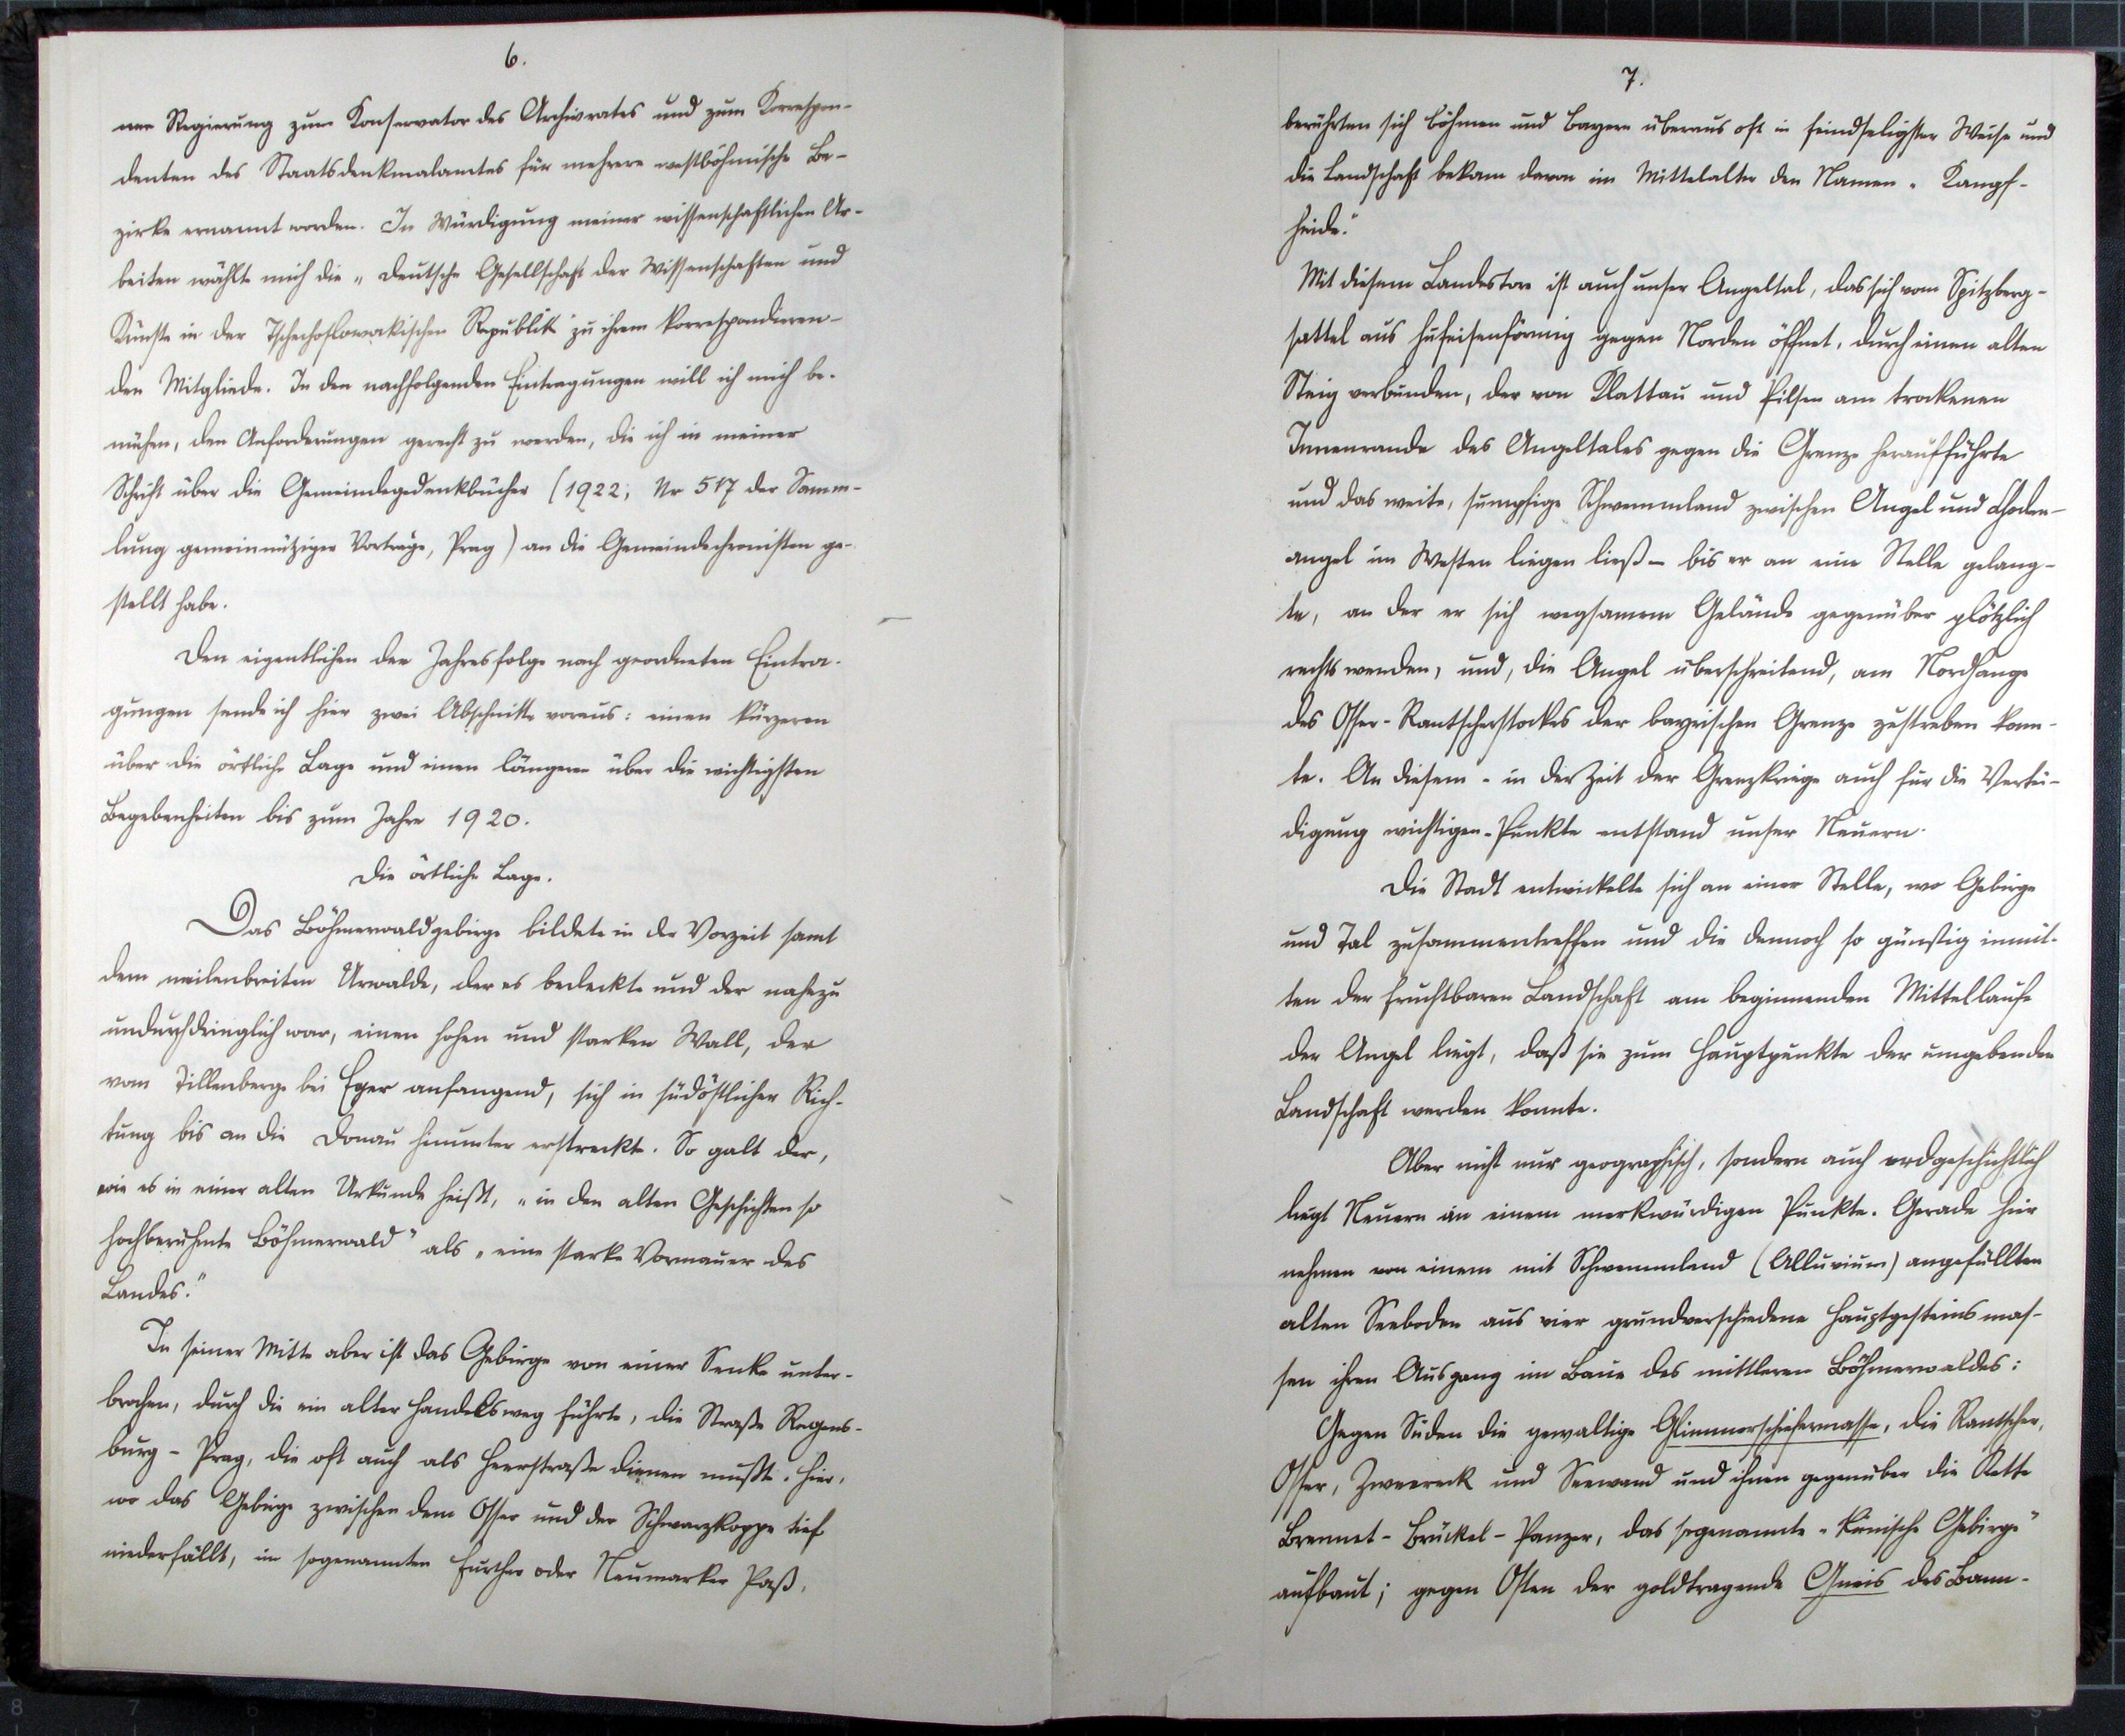 6.
ner Regierung zum Konservator des Archivrates und zum Korrespon-
denten des Staatsdenkmalamtes für mehrere westböhmische Be-
zirke ernannt worden. In Würdigung meiner wissenschaftlichen Ar-
beiten wählte mich die „Deutsche Gesellschaft der Wissenschaften und
Künste in der Tschechoslowakischen Republik" zu ihrem korrespondieren-
den Mitgliede. In den nachfolgenden Eintragungen will ich mich be-
mühen, den Anforderungen gerecht zu werden, die ich in meiner
Schrift über die Gemeindegedenkbücher (1922, Nr 517 der Samm-
lung gemeinnütziger Vorträge, Prag) an die Gemeindechronisten ge-
stellt habe.
Den eigentlichen der Jahresfolge nach geordneten Eintra-
gungen sende ich hier zwei Abschnitte voraus: einen kürzeren
über die örtliche Lage und einen längeren über die wichtigsten
Begebenheiten bis zum Jahre 1920.
Die örtliche Lage.
Das Böhmerwaldgebirge bildete in der Vorzeit samt
dem meilenbreiten Urwalde, der es bedeckte und der nahezu
undurchdringlich war, einen hohen und starken Wall, der
vom Tillenberge bei Eger anfangend, sich in südöstlicher Rich-
tung bis an die Donau hinunter erstreckte. So galt der,
wie es in einer alten Urkunde heißt, „in den alten Geschichten so
hochberühmte Böhmerwald" als „eine starke Vormauer des
Landes."
In seiner Mitte aber ist das Gebirge von einer Senke unter-
brochen, durch die ein alter Handelsweg führte, die Straße Regens-
burg - Prag, die oft auch als Heerstraße dienen mußte. Hier,
wo das Gebirge zwischen dem Osser und der Schwarzkoppe tief
niederfällt, im sogenannten Further oder Neumarker Paß,
7.
berührten sich Böhmen und Bayern überaus oft in feindseligster Weise und
die Landschaft bekam davon im Mittelalter den Namen „Kampf-
heide."
Mit diesem Landestore ist auch unser Angeltal, das sich vom Spitzberg-
sattel aus hufeisenförmig gegen Norden öffnet, durch einen alten
Steig verbunden, der von Klattau und Pilsen am trockenen
Innenrande des Angeltales gegen die Grenze heraufführte
und das weite, sumpfige Schwemmland zwischen Angel und Choden-
angel im Westen liegen ließ - bis er an eine Stelle gelang-
te, an der er sich wegsamem Gelände gegenüber plötzlich
rechts wenden, und, die Angel überschreitend, am Nordhange
des Osser-Rantscherstockes der bayrischen Grenze zustreben konn-
te. An diesem - in der Zeit der Grenzkriege auch für die Vertei-
digung wichtigen - Punkte entstand unser Neuern.
Die Stadt entwickelte sich an einer Stelle, wo Gebirge
und Tal zusammentreffen und die dennoch so günstig inmit-
ten der fruchtbaren Landschaft am beginnenden Mittellaufe
der Angel liegt, daß sie zum Hauptpunkte der umgebenden
Landschaft werden konnte.
Aber nicht nur geographisch, sondern auch erdgeschichtlich
liegt Neuern an einem merkwürdigen Punkte. Gerade hier
nehmen von einem mit Schwemmland (Alluvium) angefüllten
alten Seeboden aus vier grundverschiedene Hauptgesteinsmas-
sen ihren Ausgang im Baue des mittleren Böhmerwaldes:
Gegen Süden die gewaltige Glimmerschiefermasse, die Rantscher,
Osser, Zwereck und Seewand und ihnen gegenüber die Kette
Brennet - Brückel - Panzer, das sogenannte „künische Gebirge"
aufbaut; gegen Osten der goldtragende Gneis des Bann-